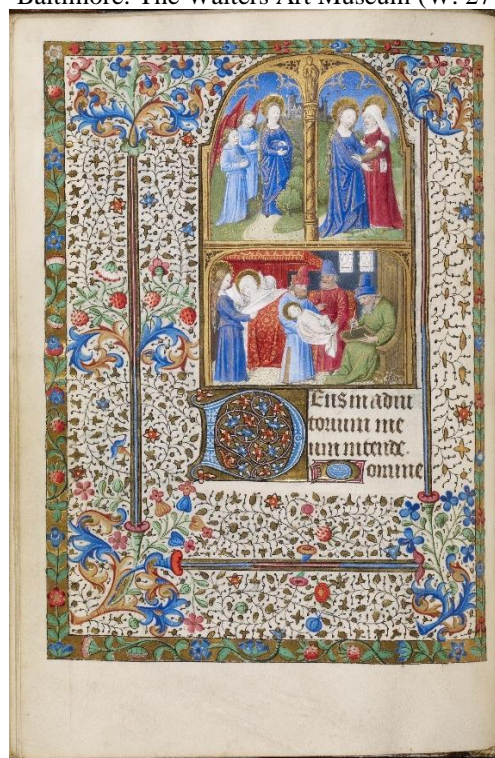 Baltimore. The Walters Art Museum (W. 27
Deus in adiu
torium me
um intende.
Domine